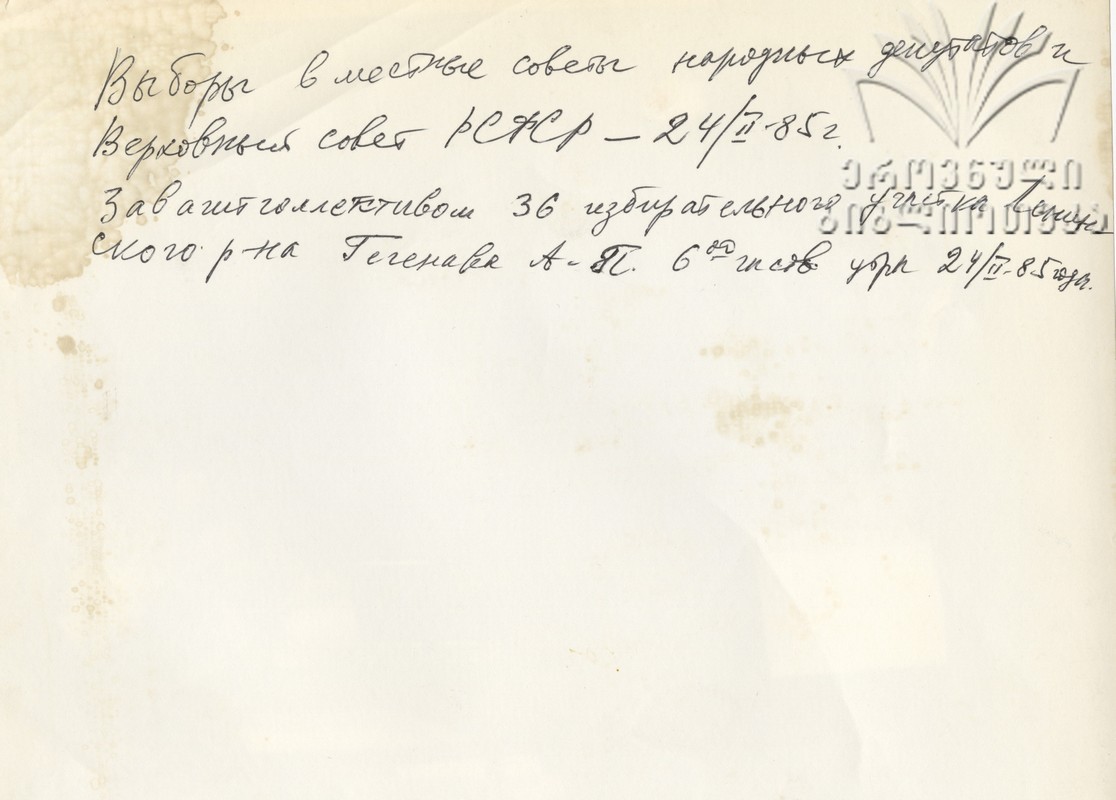 Выборы в местные советы народных депутатов и
Верховный совет РСФСР – 24/II-85г.
Зав агитколлективом 36 избирательного участка Ленин
ского р-на Гегенава А. П. 6⁰⁰ часов утра 24/II-85 года.
ეროვნული
ბიბლიოთეკა